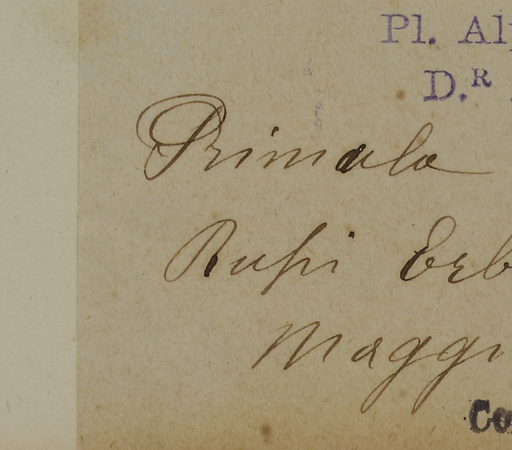 Pl. Alp
D.R
Primula
Rupi Erb
Maggi
Co